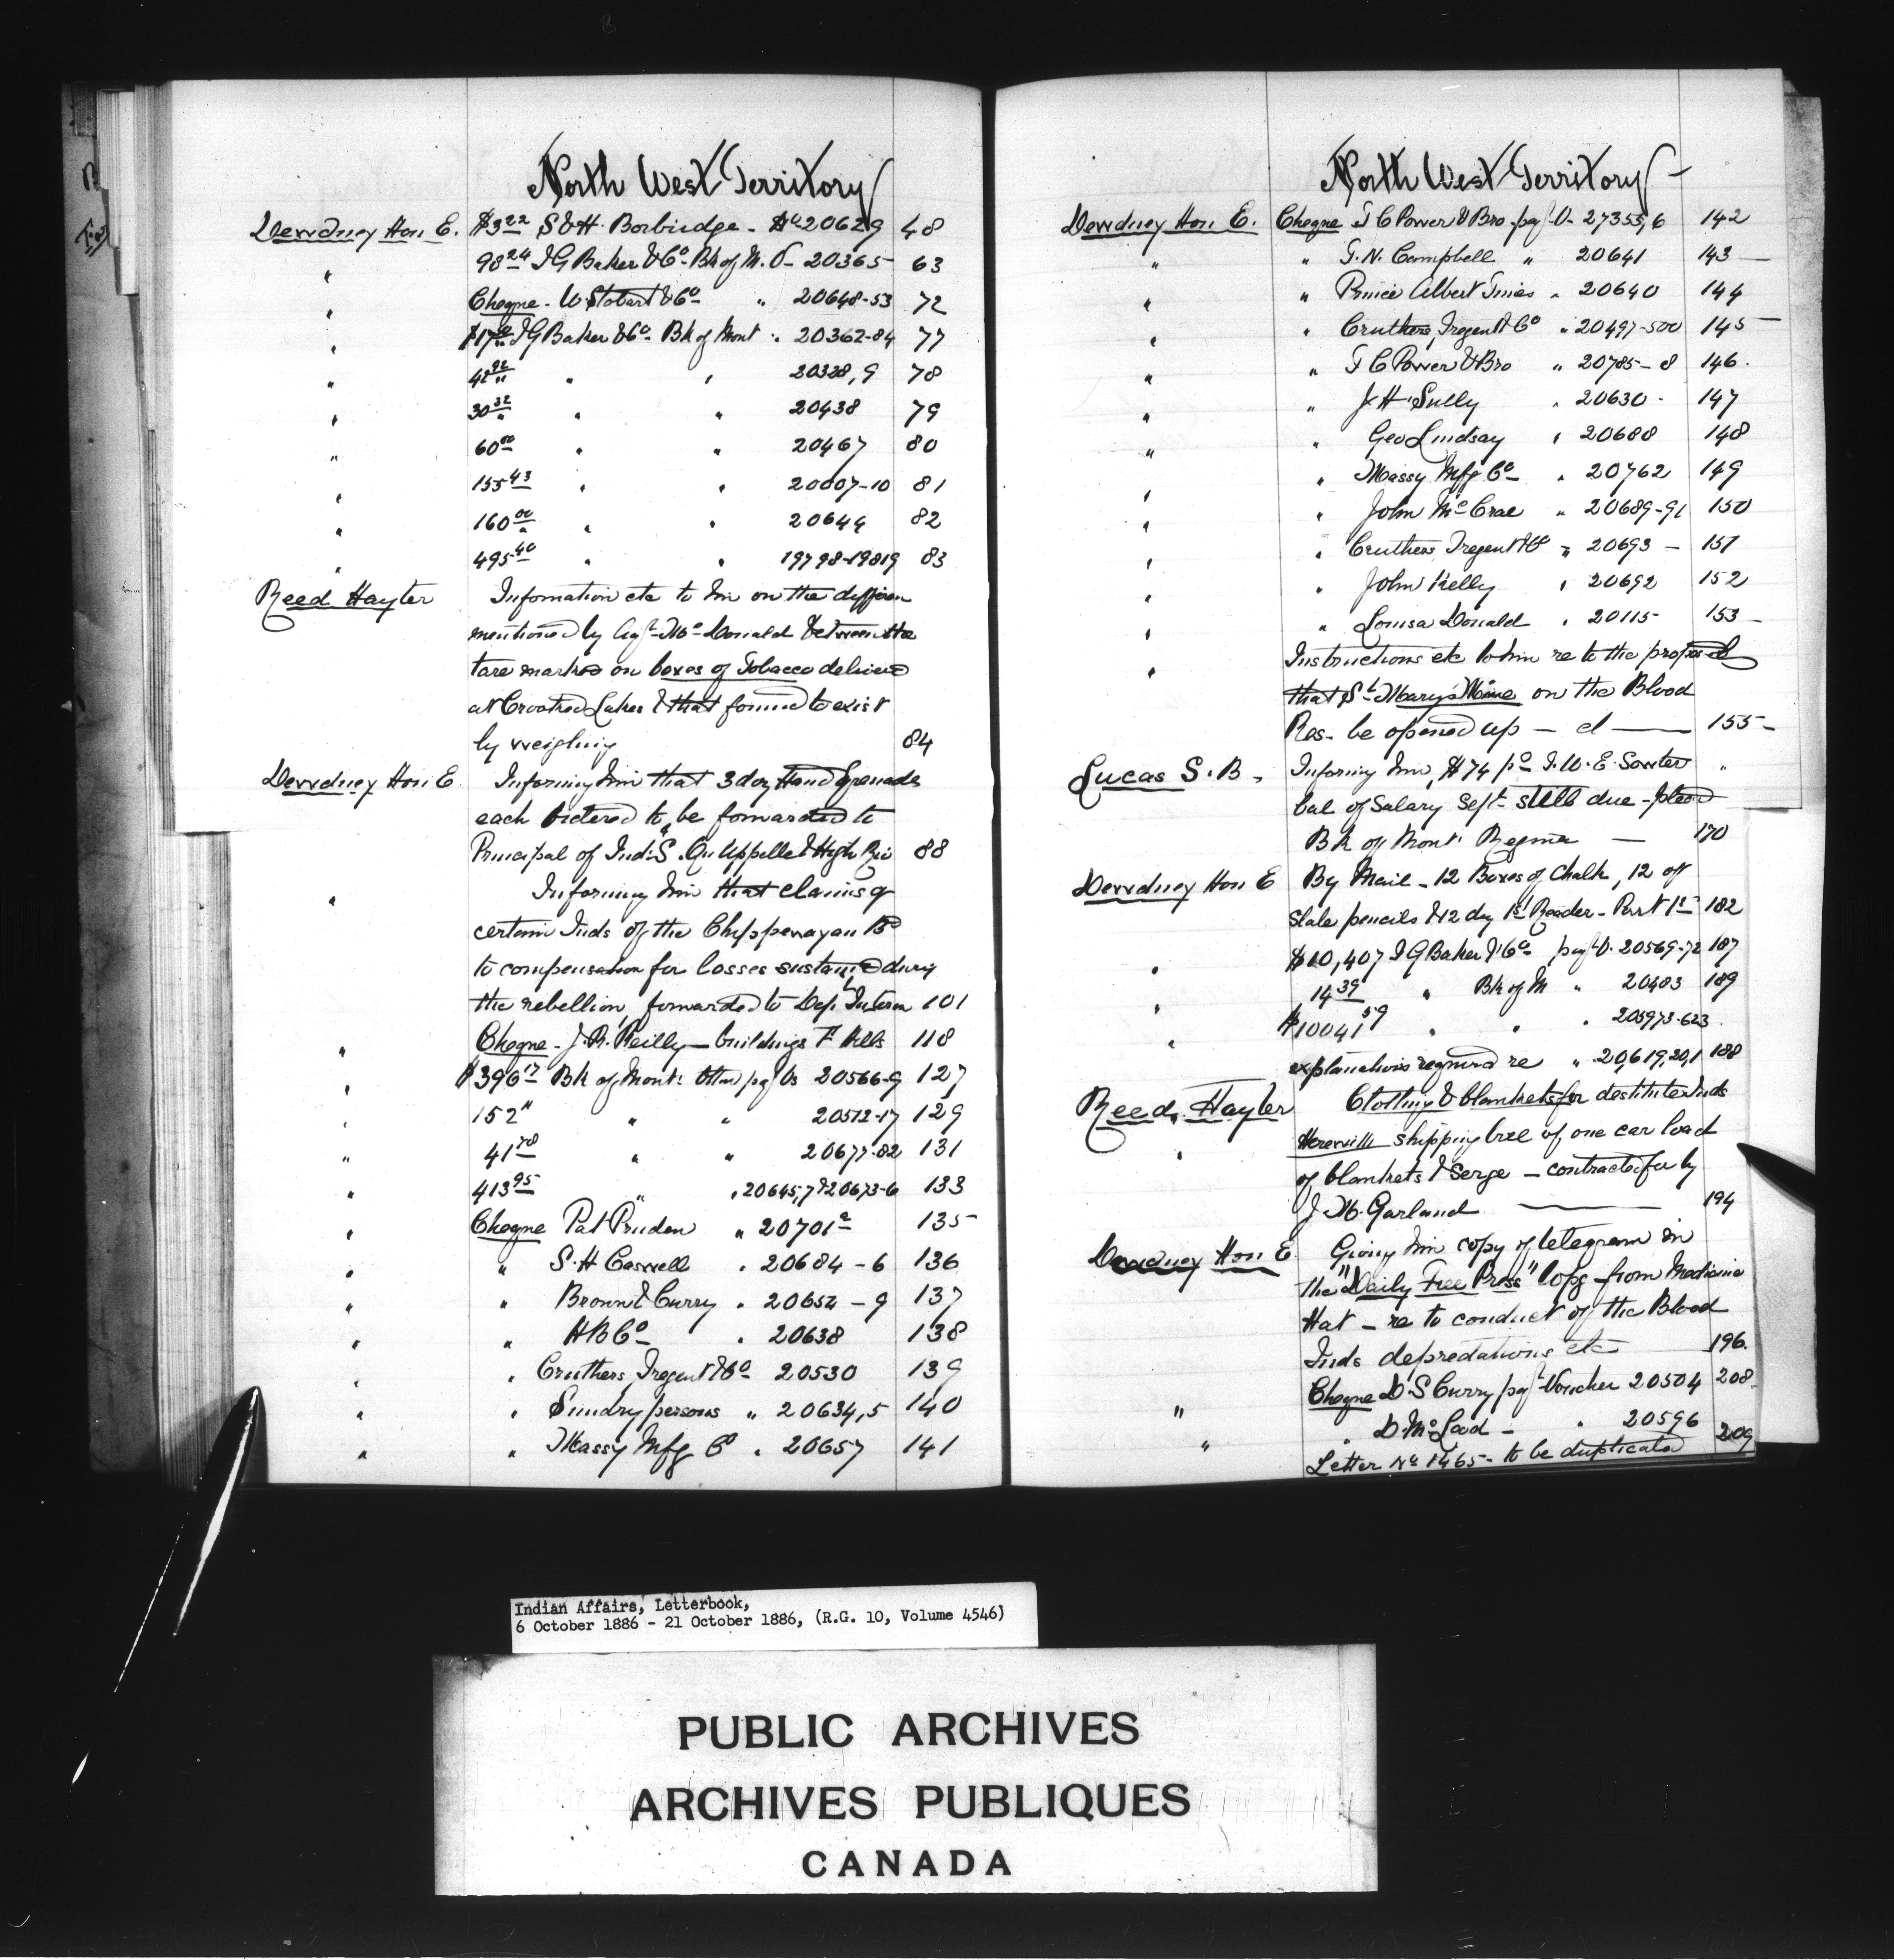 North West Territory
Dewdney Hon E. $3 22 S & H. Borbridge - No 20629 48
" 98 24 I G Baker & Co - Bk of M. V - 20365 63
" Cheque - W Stobart & Co - " 20648-53 72
" I G Baker & Co - Bk of Mont " 20362-84 77
" 42 92 " " 20328,9 78
" 30 32 " " 20438 79
" 60 00 " " 20467 80
" 155 43 " " 20007-10 81
" 160 00 " " 20644 82
" 495 40 " " 19798-19819 83
Reed Hayter Information etc to him on the differen
mentioned by Agt Mc Donald between the
tare marked on boxes of Tobacco delivered
at Crooked Lakes & that found to exist
by weighing 84
Dewdney Hon E. Informing him that 3 doz Hand Grenades
each ordered to be forwarded to
Principal of Ind. S. Qu'Appelle & High Riv 88
" Informing him that claims of
certain Inds of the Chippewayan Bd
to compensation for losses sustained during
the rebellion, forwarded to Dep. Interior 101
" Cheque - J. R. Reilly - buildings F Hills 118
" $396 17 Bk of Mont: Ottaw pay Vs 20566-9 127
" 152 " " " 20512-17 129
" 41 78 " " 20677-82 131
" 413 95 " " 20645,7 & 20673-6 133
" Cheque Pat Pruden " 20701 a 135
" " S. H Caswell " 20684-6 136
" " Brown & Curry " 20654-9 137
" " H B Co - " 20638 138
" " Cruthers, Tregent & Co - 20530 139
" " Sundry persons " 20634,5 140
" " Massy Mfg Co " 20657 141
North West Territory -
Dewdney Hon E. Cheque T C Power & Bro - payt V - 27355,6 142
" " T. N. Campbell " 20641 143
" " Prince Albert Times " 20640 144
" " Cruthers, Tregent & Co " 20497-500 145
" " T C Power & Bro " 20785-8 146
" " J H Sully " 20630 - 147
" " Geo Lindsay " 20688 148
" " Massy Mfg Co - " 20762 149
" " John McCrae " 20689-91 150
" " Cruthers Tregent & Co " 20693 - 151
" " John Kelly " 20692 152
" " Louisa Donald " 20115 153
" Instructions etc to him re to the proposal
that St Mary's Mine on the Blood
Res. be opened up - 155
Lucas S. B. Informing him, $74 T. W. E. Sowter "
bal of Salary Sept - still due - placed
Bk of Mont: Regina - 170
Dewdney Hon E By Mail - 12 Boxes of Chalk, 12 of
Slate pencils & 12 dz 1st Reader - Part 1st 182
" $10,407 I G Baker & Co payt V. 20569-72 187
" 14 39 " Bk of M " 20403 189
" $10041 59 " " " 205973-623
explanations required re " 20,619,20,1 188
Reed, Hayter Clothing & blankets for destitute Inds
" Herewith shipping bill of one car load
of blankets & serge - contracted for by
J. M. Garland 194
Dewdney Hon E. Giving him copy of telegram in
the "Daily Free Press" Wpg - from Medicine
Hat - re to conduct of the Blood
Inds depredations etc 196.
" Cheque D. S Curry payt Voucher 20504 208
" " D. McLeod - " 20596 209
Letter No 1465 - to be duplicated
Indian Affairs, Letterbook,
6 October 1886 - 21 October 1886, (R.G. 10, Volume 4546)
PUBLIC ARCHIVES
ARCHIVES PUBLIQUES
CANADA